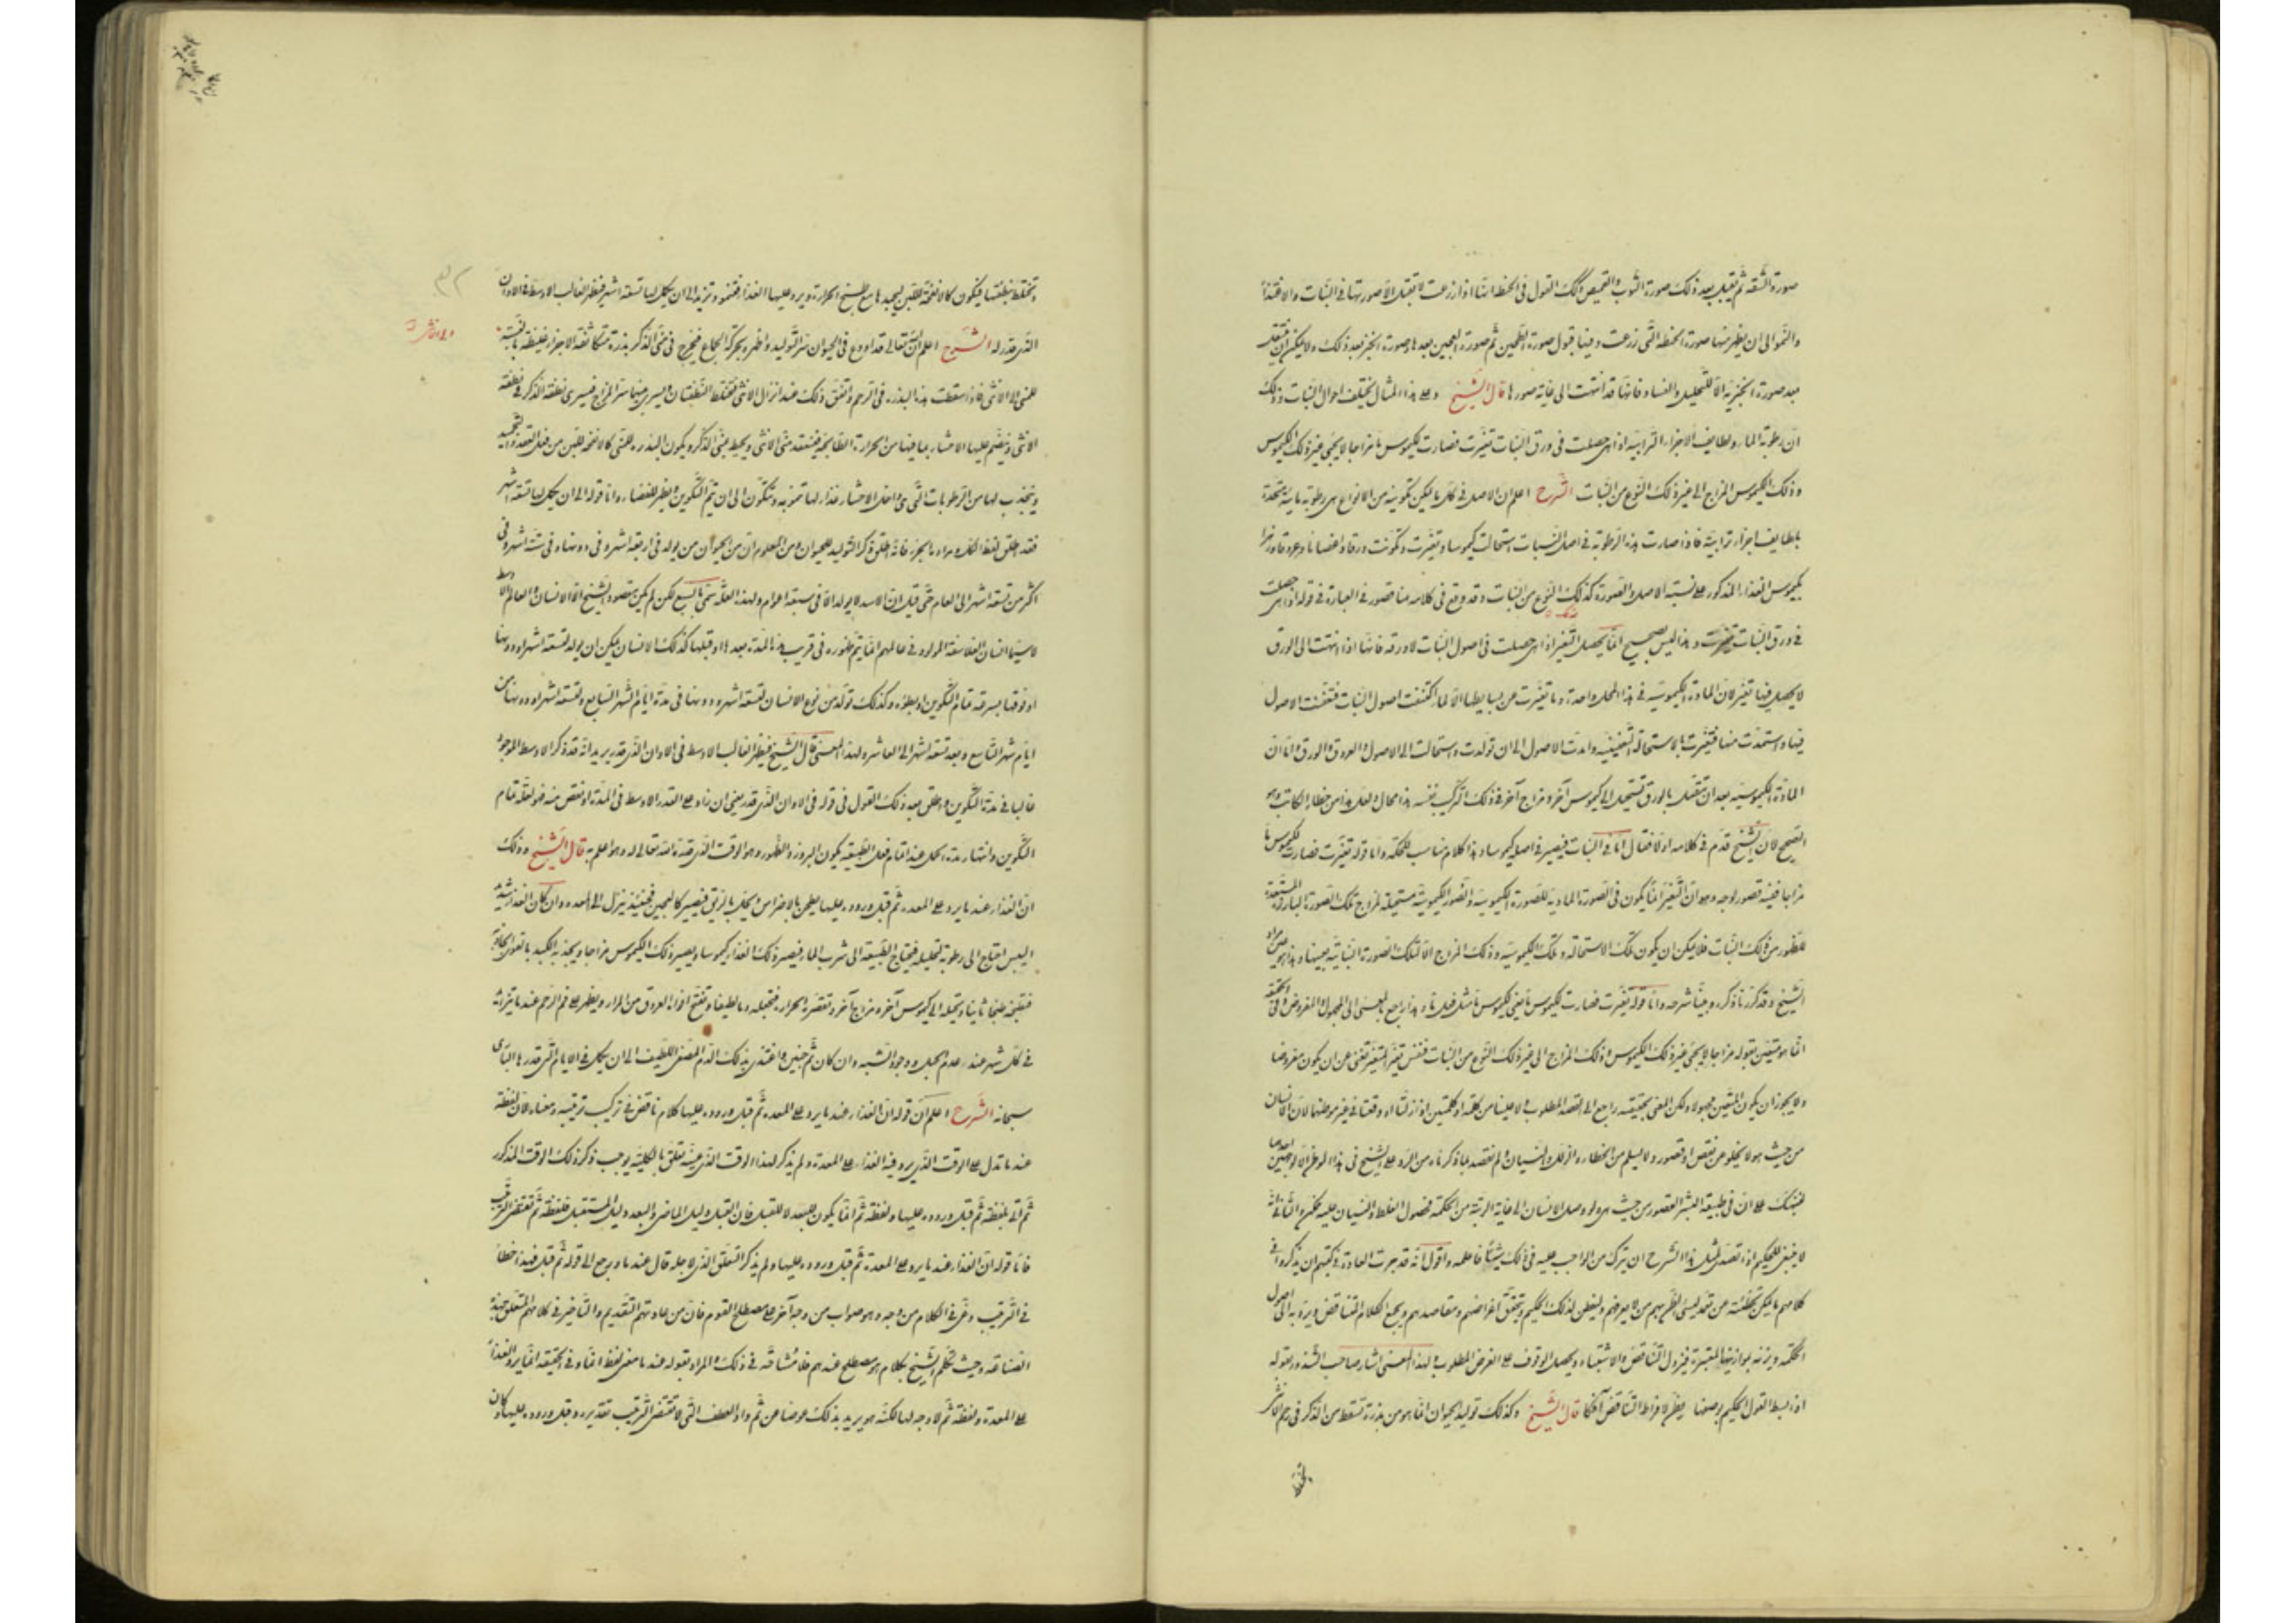 صورة الشقة ثم يقبل بعد ذلك صورة الثوب والقميص وكذلك القول في الحنطة انها اذا زرعت لا تقبل الا صورتها في النبات والاغتذاء
والنمو الى ان يظهر منها صورة الحنطة التي زرعت وفيها قبول صورة الطحين ثم صورة العجين بعدها وصورة الخبز بعد ذلك ولا يمكن ان تقبل
بعد صورة الخبزية الا للتحليل والفساد فانها قد انتهت الى غاية صورها قال الشيخ وعلى هذا المثال يختلف احوال النبات وذلك
ان رطوبة الماء ولطايف الاجزاء الترابية اذا هي حصلت في ورق النبات تغيرت فصارت لكيموس ما مزاجا لا يجئ غير ذلك الكيموس
وذلك الكيموس المزاج الى غير ذلك النوع من النبات الشرح اعلم ان الاصل في كل ما يمكن تكوينه من الانواع هي رطوبة مائية متحدة
بلطايف اجزاء ترابية فاذا صارت هذه الرطوبة في اصل النبات استحالت كيموسا وتغيرت وتكونت ورقا واغصانا وعروقا
بكيموس الغذاء المذكور على نسبة الاصل والصورة كذلك النوع من النبات وقد وقع في كلامه هنا قصور في العبارة في قوله اذا هي حصلت
في ورق النبات تغيرت وهذا ليس بصحيح انما يحصل التغير اذا هي حصلت في اصول النبات لا ورقه فانها اذا انتهت الى الورق
لا يحصل فيها تغير لان المادة الكيموسية في هذا المحل واحدة وما تغيرت عن بسايطها الا لما اكتنفت اصول النبات فتعفنت الاصول
فيها واستمدت منها فتغيرت بالاستحالة التعفينية وامدت الاصول الى ان تولدت واستحالت الى الاصول والعروق والورق واما ان
المادة الكيموسية بعد ان تنتقل بالورق تستحيل الى كيموس آخر ومزاج آخر في ذلك التركيب نفسه هذا محال ولعل هذا من خطاء الكاتب وهو
الصحيح لان الشيخ قدم في كلامه اولا فقال اما في النبات فيصير في اصله كيموسا وهذا كلام مناسب للحكمة واما قوله تغيرت فصارت لكيموس ما
مزاجا ففيه قصور لوجه وهو ان التغير انما يكون في الصورة المادية للصورة الكيموسية والصور الكيموسية مستحيلة لمزاج تلك الصورة
للظهور من ذلك النبات فلا يمكن ان يكون تلك الاستحالة وتلك الكيموسية وذلك المزاج الا لتلك الصورة النباتية بعينها وهذا هو
الشيخ وقد كررنا ذكره وبينا شرحه واما قوله تغيرت فصارت لكيموس ما يعني لكيموس ما مثل قبل ما وهذا راجع بالمعنى الى المجهول والمفروض
انما هو متيقن بقوله مزاجا لا يجئ غير ذلك الكيموس وذلك المزاج الى غير ذلك النوع من النبات فنفس تغير المتغير تغني عن ان يكون مفروضا
ولا يجوز ان يكون المتيقن مجهولا ولكن المعنى بحقيقته راجع الى القصد المطلوب ولا علينا من كلمة او كلمتين اذا زلتا او وقعتا في غير موضعهما لان الانسان
من حيث هو لا يخلو من نقص او قصور ولا يسلم من الخطاء والزلل والنسيان ولم نقصد بما ذكرناه من الرد على الشيخ في هذا الموضع الا لوجهين احدهما
لننبهك على ان في طبيعة البشر القصور من حيث هي ولو وصل الانسان الى غاية الرتبة من الحكمة فحصول الغلط والنسيان عليه ممكن والثاني انه
لا ينبغي للحكيم اذا تصدى لمثل هذا الشرح ان يترك من الواجب عليه في ذلك شيئا فاعلمه واقول انه قد جرت العادة في كتبهم ان يذكروا في
كلامهم ما يمكن تخطئته عن قصد لينسى الظن بهم من لا يعرفهم وليفطن لذلك الحكيم ويتحقق اغراضهم ومقاصدهم ويجمع الكلام المتناقض ويرد به الى اصول
الحكمة ويزنه بموازينها المعتبرة فيزول التناقض والاشتباه ويحصل الوقوف على الغرض المطلوب ولهذا المعنى اشار صاحب الشذور بقوله
اذا بسط القول الحكيم بوصفها يظن لافراط التناقض آفكا قال الشيخ وكذلك توليد الحيوان انما هو من بذرة تسقط من الذكر في رحم الانثى
وتختلط
وتختلط بنطفتها فيكون كالانفحة للبن ليجمدها مع طبخ الحرارة ويرد عليها الغذاء فتنمو وتزيد الى ان يكمل لها تسعة اشهر فيظهر الغالب الاوسط في الاوان
الذي قدر له الشرح اعلم ان الله تعالى قد اودع في الحيوان سر التوليد واظهره بحركة الجماع فيخرج في مني الذكر بذرة متكاثفة الاجزاء غليظة بالنسبة
للمني الى الانثى فاذا سقطت هذه البذرة في الرحم واتفق ذلك عند انزال الانثى فتختلط النطفتان ويسري منهما سر المزاج فيسري نطفة الذكر في نطفة
الانثى وتنضم عليها الاحشاء بما فيها من الحرارة الطابخة فينعقد مني الانثى ويحيط بمني الذكر ويكون البذرة للمني كالانفحة للبن من قبل العقد والتجميد
وينجذب لها من الرطوبات التي في داخل الاحشاء غذاء لها تنمو به وتتكون الى ان يتم التكوين ويظهر للفضاء واما قوله الى ان يكمل لها تسعة اشهر
فقد اطلق لفظ الكل ومراده الجزء فانه اطلق ذكر التوليد للحيوان ومن المعلوم ان من الحيوان من يولد في اربعة اشهر وفي دونها وفي ستة اشهر وفي
اكثر من تسعة اشهر الى العام حتى قيل ان الاسد لا يولد الا في سبعة اعوام ولهذه العلة سمي بالسبع لكن لم يكن مقصود الشيخ الا الانسان والعالم الاوسط
لا سيما انسان الفلاسفة المولود في عالمهم انما يتم ظهوره في قريب هذه المدة بعدها او قبلها كذلك الانسان يمكن ان يولد لتسعة اشهر او دونها
او فوقها بسرعة تمام التكوين او بطؤه وكذلك تولد من نوع الانسان لتسعة اشهر ودونها في مدة ايام الشهر السابع ولتسعة اشهر او دونها من
ايام شهر التاسع وبعد تسعة اشهر الى العاشر ولهذا المعنى قال الشيخ فيظهر الغالب الاوسط في الاوان الذي قدر يريد انه قد ذكر الاوسط الموجود
غالبا في مدة التكوين واطلق بعد ذلك القول في قوله في الاوان الذي قدر يعني ان زاد على القدر الاوسط في المدة او نقص منه فهو لعلة تمام
التكوين وانتهاء مدة الحمل عند اتمام فعل الطبيعة يكون البروز والظهور وهو الوقت الذي قدره الله تعالى له وهو اعلم به قال الشيخ وذلك
ان الغذاء عند ما يرد على المعدة ثم قبل وروده عليها يطحن بالاضراس وينحل بالريق فيصير كالعجين فحينئذ ينزل الى المعدة وان كان الغذاء شديد
اليبس احتاج الى رطوبة لتحليله فيحتاج الطبيعة الى شرب الماء فيصير ذلك الغذاء كيموسا ويصير ذلك الكيموس مزاجا ويجذبه الكبد بالقوة الجاذبة
فتطبخه طبخا ثانيا وتحيله الى كيموس آخر ومزاج آخر وتعقده الحرارة فتجعله دما لطيفا وتفتح افواه العروق من المرار ويظهر على فم الرحم عند ما يزيد
في كل شهر عند عدم الحمل ووجود الشبه وان كان ثم جنين اغتذى بذلك الدم المصفى اللطيف الى ان يكمل في الايام التي قدرها الباري
سبحانه الشرح اعلم ان قوله ان الغذاء عند ما يرد على المعدة ثم قبل وروده عليها كلام ناقض في تركيب ترتيبه ومعناه لان لفظة
عند ما تدل على الوقت الذي يرد فيه الغذاء على المعدة ولم يذكر لهذا الوقت الذي عينه تعلق بالكلية يوجب ذكره ذلك الوقت المذكور
ثم اتى بلفظة ثم قبل وروده عليها ولفظة ثم انما يكون للبعد لا للقبل فان القبل دليل الماضي والبعد دليل المستقبل فلفظة ثم تقتضي الترتيب
فاما قوله ان الغذاء عند ما يرد على المعدة ثم قبل وروده عليها ولم يذكر التعلق الذي لاجله قال عند ما ورجع الى قوله ثم قبل فهذا خطاء
في الترتيب وفي الكلام من وجه وهو صواب من وجه آخر على مصطلح القوم فان من عادتهم التقديم والتاخير في كلامهم المتعلق بهذه
الصناعة وحيث تكلم الشيخ بكلام هو مصطلح عندهم فلا مشاحة في ذلك والمراد بقوله عند ما معنى لفظ انما وفي الحقيقة انما يرد الغذاء
على المعدة ولفظة ثم لا وجه لها لكنه هو يريد بذلك عوضا عن ثم واو العطف التي لا تقتضي الترتيب تقديره وقبل وروده عليها وكان